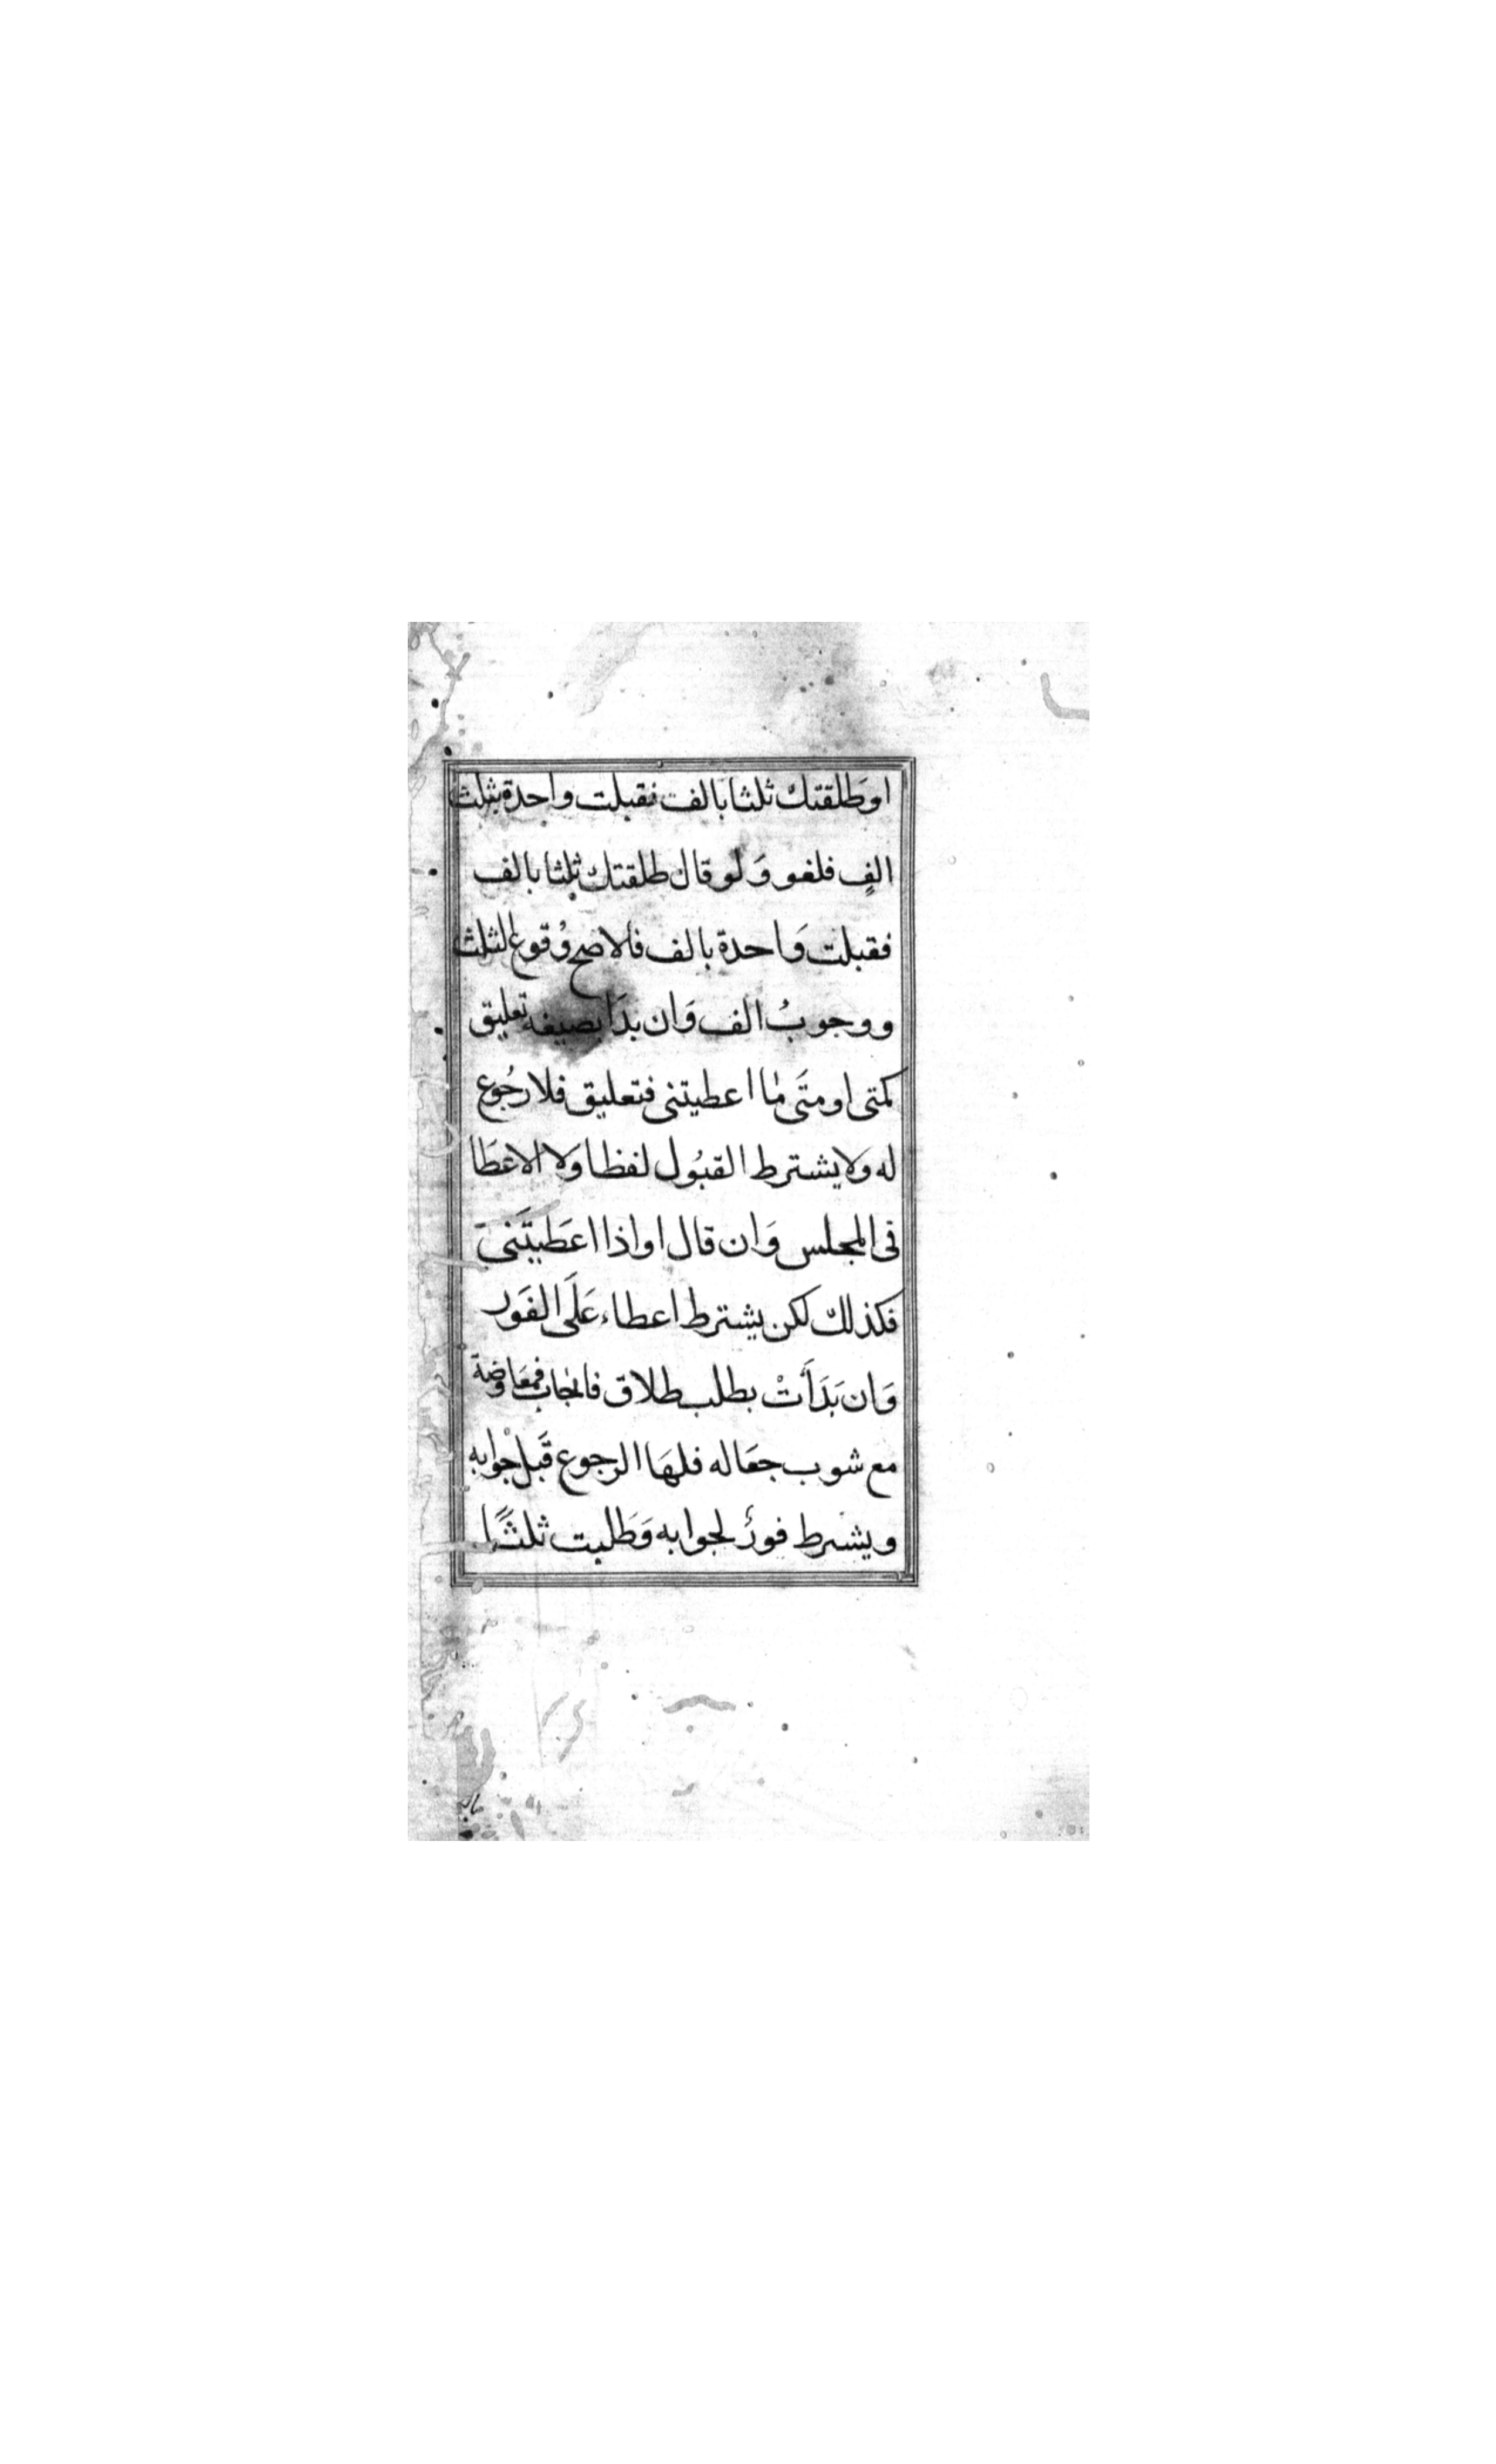 او طلقتك ثلثا بالف فقبلت واحدة بثلث
الف فلغو وَلو قال طلقتك ثلثا بالف
فقبلت وَاحدة بالف فالاصح وُقوع الثلث
ووجوبُ الف وَان بدَا بصيغه تعليق
كمتى او متَى مٰا اعطيتنى فتعليق فلا رجُوع
له ولا يشترط القبُول لفظا وَلا الاعطَا
فى المجلس وَان قال او اذا اعَطيتَنى
فكذلك لكن يشترط اعطاء عَلَى الفَور
وَان بَدَأَتْ بطلب طلاق فاجاب فمعَاوضَة
مع شوب جعَاله فلهَا الرجوع قَبل جْوابه
ويشرط فورٌ لجوابه وَطَلبت ثلثًا